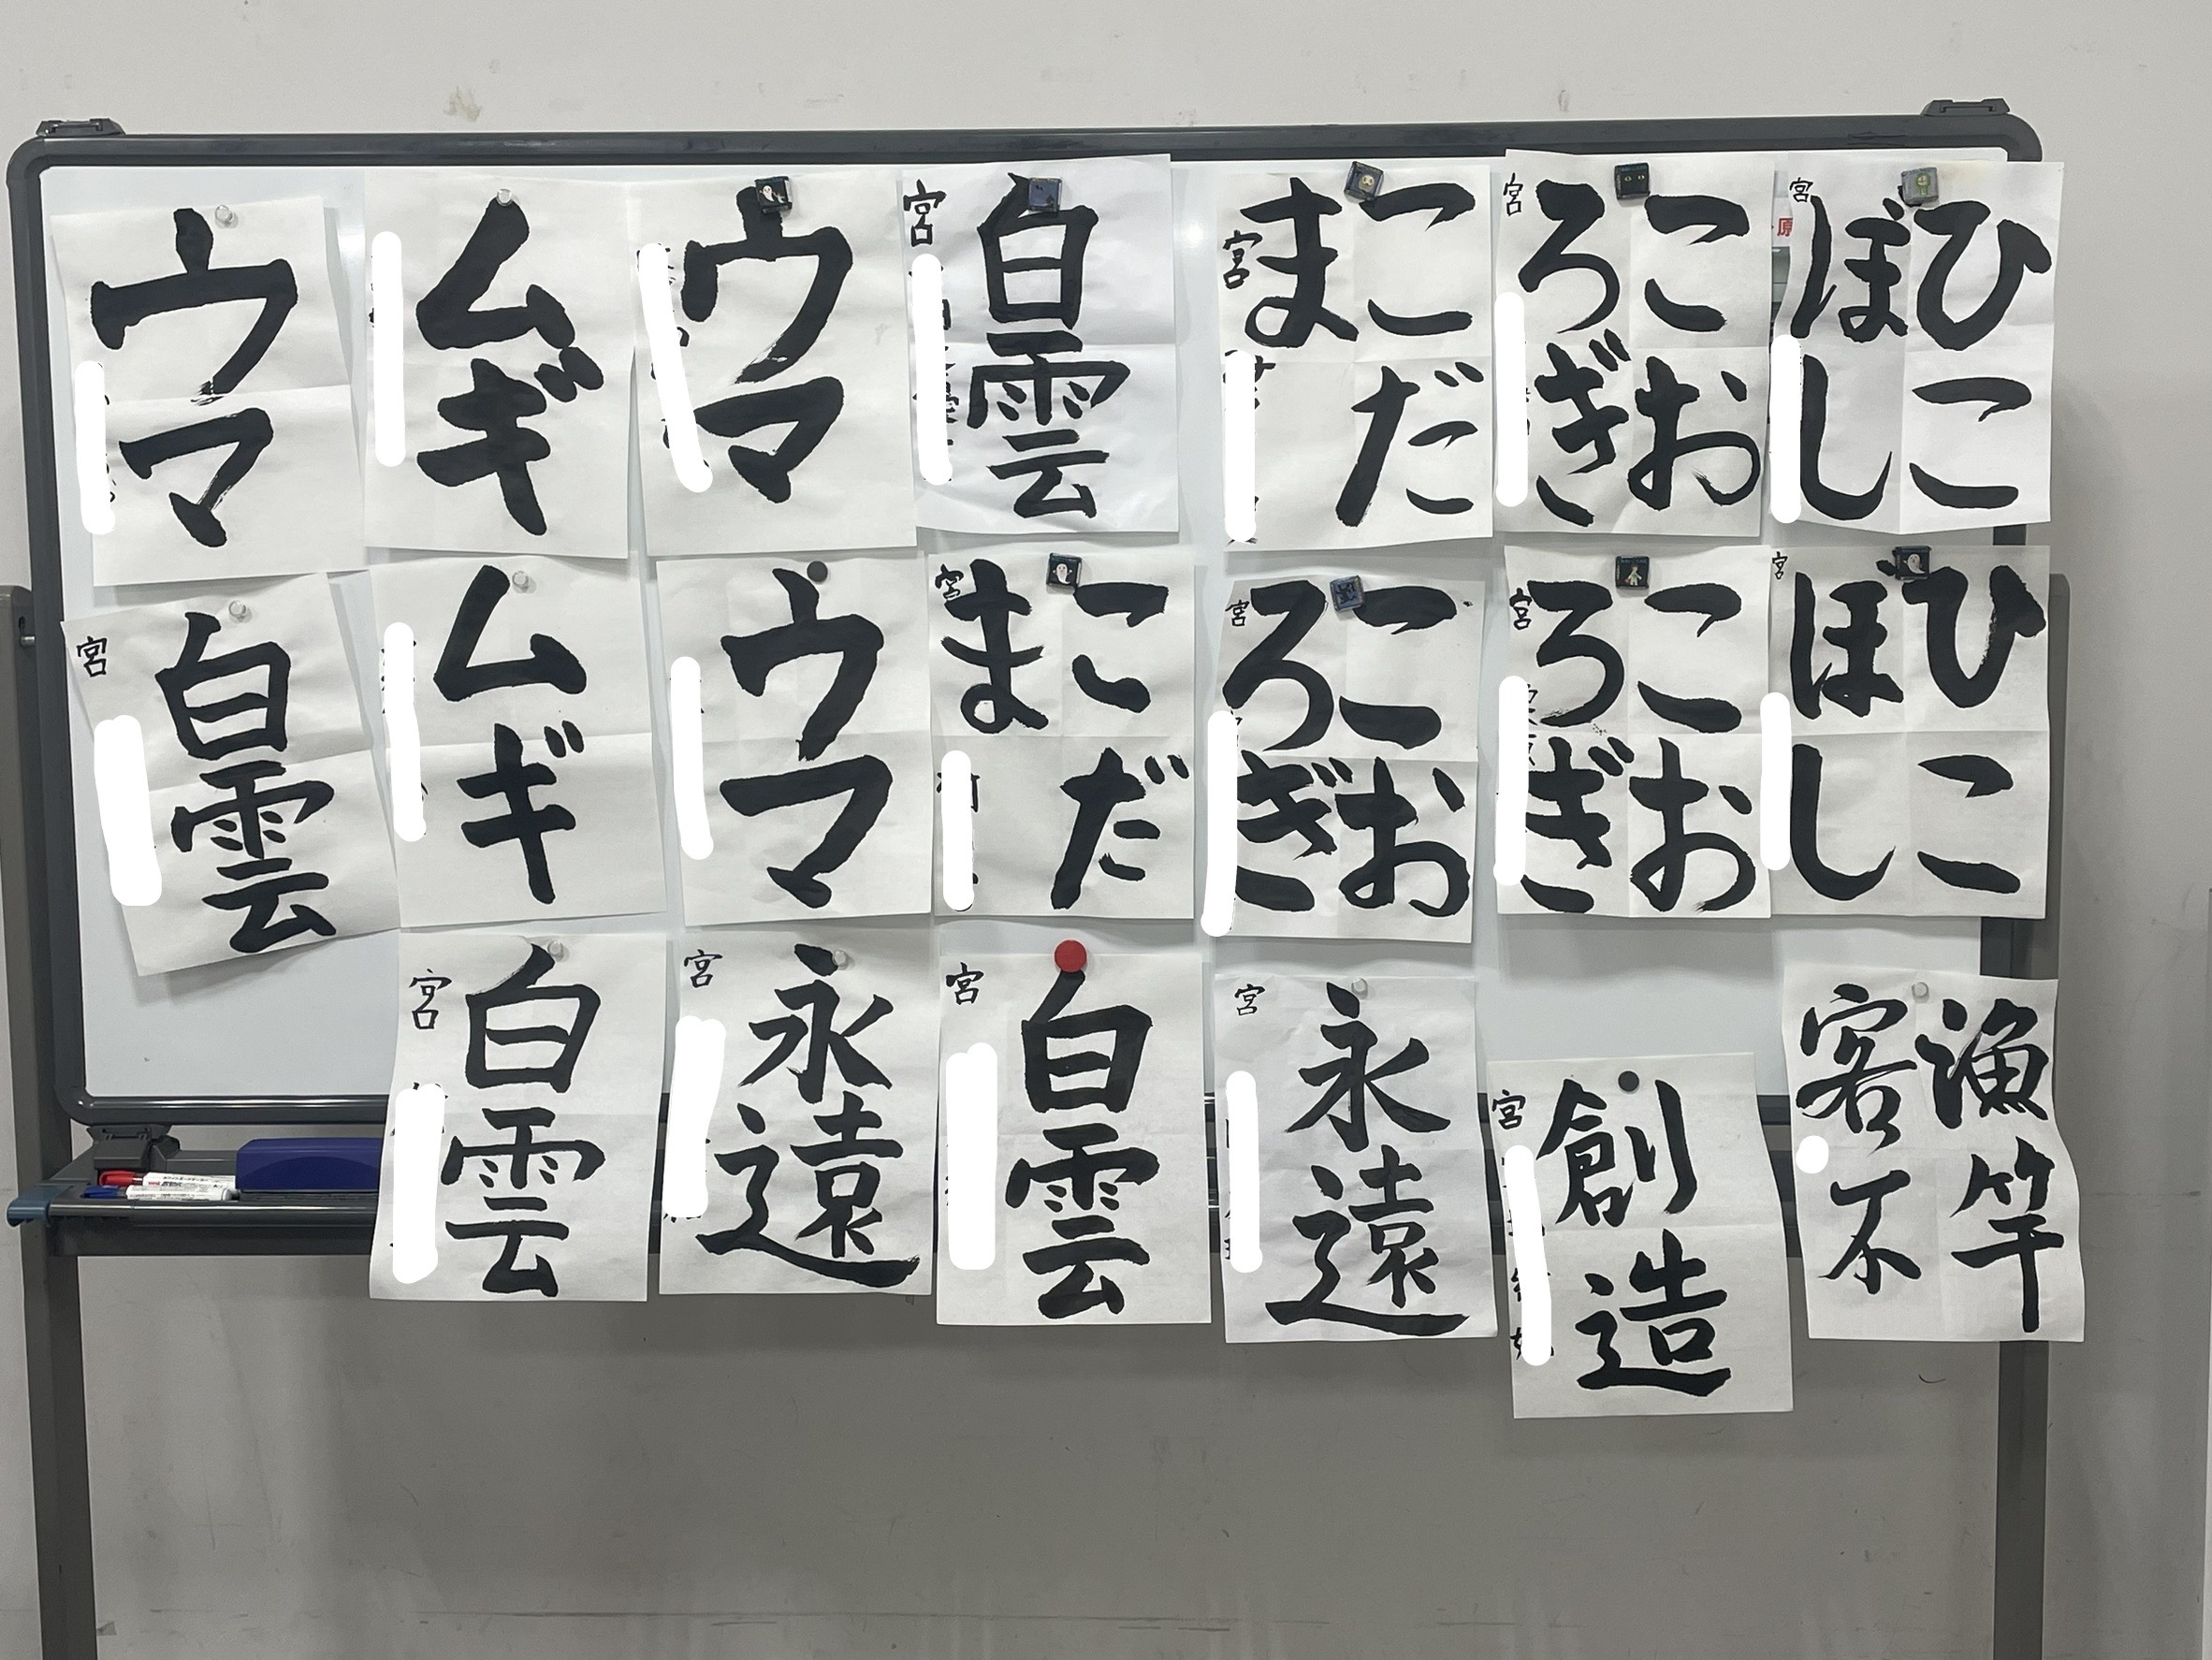 ウマ
ムギ
ウマ
白雲
宮
こだ
ま
宮
こお
ろぎ
宮
ひこ
ぼし
宮
原
白雲
宮
ムギ
ウマ
こだ
ま
宮
こお
ろぎ
宮
こお
ろぎ
宮
ひこ
ほし
宮
白雲
宮
永遠
宮
白雲
宮
永遠
宮
創造
宮
漁竿
客不